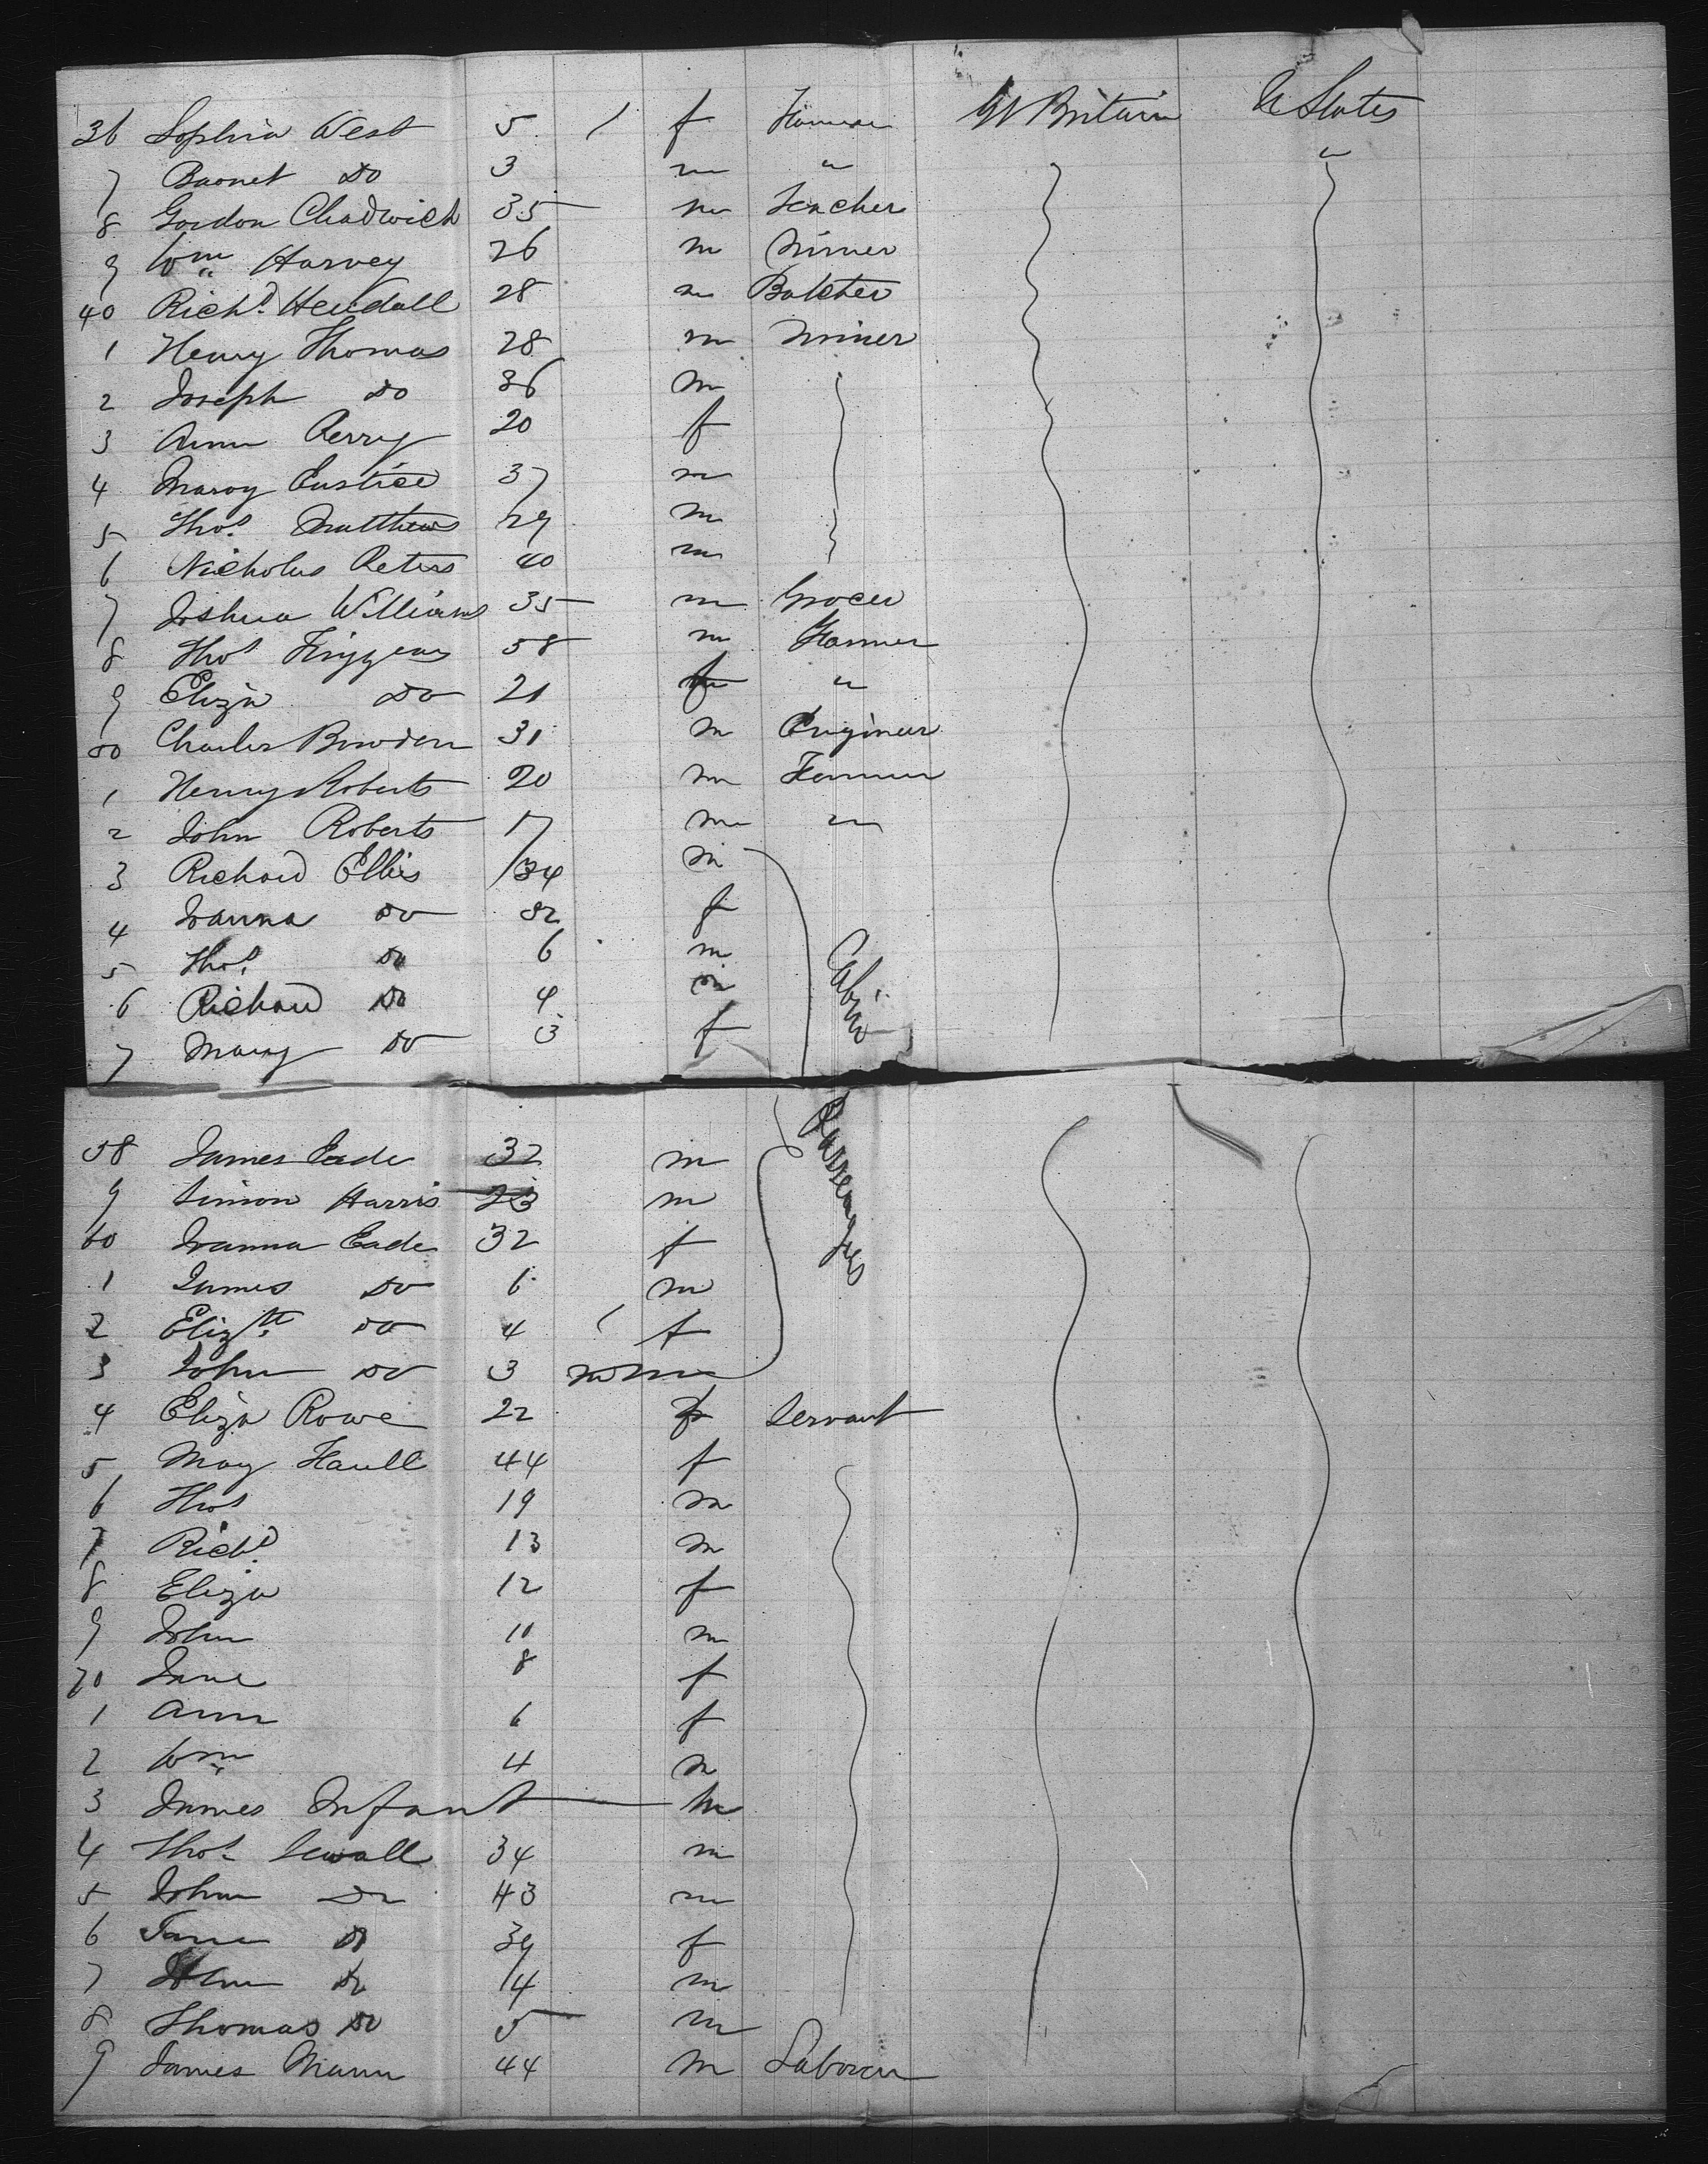 36 Sophia West 5 / f Farmer Gt Britain U States
7 Barnet Do 3 m " "
8 Gordon Chadwick 35 m Teacher
9 Wm Harvey 26 m Miner
40 Richd Hendall 28 m Butcher
1 Henry Thomas 28 m Miner
2 Joseph Do 36 m
3 Ann Perry 20 f
4 Eustice 37 m
5 Thos. Matthews 29 m
6 Nicholas Peters 40 m
7 Joshua Williams 35 m Grocer
8 Thos 58 m Farmer
9 Eliza Do 21 f "
50 Charles Bowden 31 m Engineer
1 Henry Roberts 20 m Farmer
2 John Roberts 17 m "
3 Richard Ellis 34 m
4 Joanna Do 32 f
5 Thos. Do 6 m
6 Richard Do 4 m Cabin
7 Mary Do 3 f
58 James Eade 32 m Passengers
9 Simon Harris 23 m
60 Joanna Eade 32 f
1 James Do 6 m
2 Elizth Do 4 / f
3 John Do 3 m
4 Eliza Rowe 22 f Servant
5 May 44 f
6 Thos 19 m
7 Richd 13 m
8 Eliza 12 f
9 John 10 m
70 Jane 8 f
1 Ann 6 f
2 Wm 4 m
3 James Infant m
4 Thos Sewall 34 m
5 John Do 43 m
6 Jane Do 39 f
7 John Do 14 m
8 Thomas Do 5 m
9 James Mann 44 m Laborer